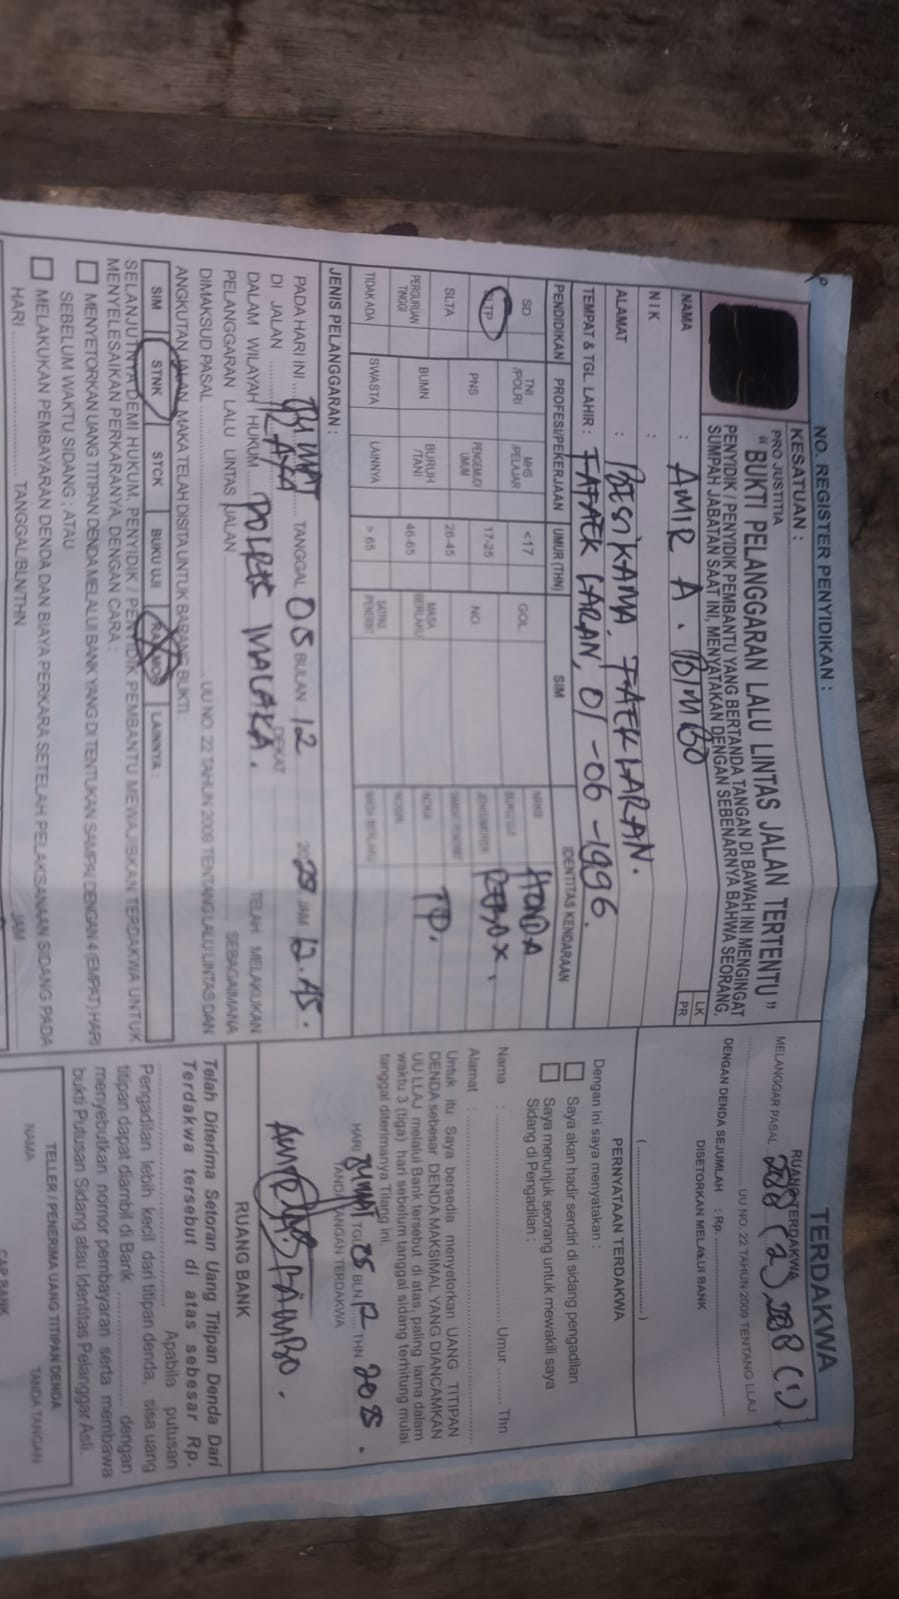 NO. REGISTER PENYIDIKAN :
KESATUAN :
PRO JUSTITIA
“ BUKTI PELANGGARAN LALU LINTAS JALAN TERTENTU ”
PENYIDIK / PENYIDIK PEMBANTU YANG BERTANDA TANGAN DI BAWAH INI MENGINGAT
SUMPAH JABATAN SAAT INI, MENYATAKAN DENGAN SEBENARNYA BAHWA SEORANG.
NAMA : AMIR A. BIMBO
LK
PR
NIK :
ALAMAT : BESIKAMA, FAEKLARAN.
TEMPAT & TGL. LAHIR : FAFAEK LARAN, 01-06-1996.
PENDIDIKAN PROFESI/PEKERJAAN UMUR (THN) SIM IDENTITAS KENDARAAN
SD TNI /POLRI MHS /PELAJAR <17 GOL. HONDA
SLTP PNS PENGEMUDI UMUM 17-25 NO.
SLTA BUMN BURUH /TANI 26-45 MASA BERLAKU TP.
PERGURUAN TINGGI SWASTA LAINNYA 46-65 SATPAS PENERBIT
TIDAK ADA > 65
JENIS PELANGGARAN :
PADA HARI INI JUMAT TANGGAL 05 BULAN 12 JAM 12.45.
DI JALAN RAYA DEKAT
DALAM WILAYAH HUKUM POLRES MALAKA. TELAH MELAKUKAN
PELANGGARAN LALU LINTAS JALAN SEBAGAIMANA
DIMAKSUD PASAL ........ UU NO. 22 TAHUN 2009 TENTANG LALU LINTAS DAN
ANGKUTAN JALAN, MAKA TELAH DISITA UNTUK BARANG BUKTI :
SIM STNK STCK BUKU UJI RANMOR LAINNYA :
SELANJUTNYA DEMI HUKUM, PENYIDIK / PENYIDIK PEMBANTU MEWAJIBKAN TERDAKWA UNTUK
MENYELESAIKAN PERKARANYA, DENGAN CARA :
MENYETORKAN UANG TITIPAN DENDA MELALUI BANK YANG DI TENTUKAN SAMPAI DENGAN 4 (EMPAT) HARI
SEBELUM WAKTU SIDANG ; ATAU
MELAKUKAN PEMBAYARAN DENDA DAN BIAYA PERKARA SETELAH PELAKSANAAN SIDANG PADA
HARI ........ TANGGAL/BLN/THN ........ JAM
TERDAKWA
RUANG TERDAKWA
MELANGGAR PASAL 288 (2), 288 (1)
........ UU NO. 22 TAHUN 2009 TENTANG LLAJ.
DENGAN DENDA SEJUMLAH : Rp. ........
DISETORKAN MELALUI BANK
(........)
PERNYATAAN TERDAKWA
Dengan ini saya menyatakan :
Saya akan hadir sendiri di sidang pengadilan
Saya menunjuk seorang untuk mewakili saya
Sidang di Pengadilan :
Nama : ........ Umur ........ Thn
Alamat : ........
Untuk itu Saya bersedia menyetorkan UANG TITIPAN
DENDA sebesar DENDA MAKSIMAL YANG DIANCAMKAN
UU LLAJ melalui Bank tersebut di atas, paling lama dalam
waktu 3 (tiga) hari sebelum tanggal sidang terhitung mulai
tanggal diterimanya Tilang ini.
HARI JUMAT TGL 05 BLN 12 THN
TANDA TANGAN TERDAKWA
RUANG BANK
Telah Diterima Setoran Uang Titipan Denda Dari
Terdakwa tersebut di atas sebesar Rp.
........ Apabila putusan
Pengadilan lebih kecil dari titipan denda, sisa uang
titipan dapat diambil di Bank ........ dengan
menyebutkan nomor pembayaran serta membawa
bukti Putusan Sidang atau Identitas Pelanggar Asli.
TELLER / PENERIMA UANG TITIPAN DENDA
NAMA TANDA TANGAN
CAP BANK